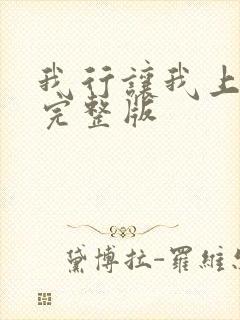 我行讓我上
完整版
黛博拉-羅維